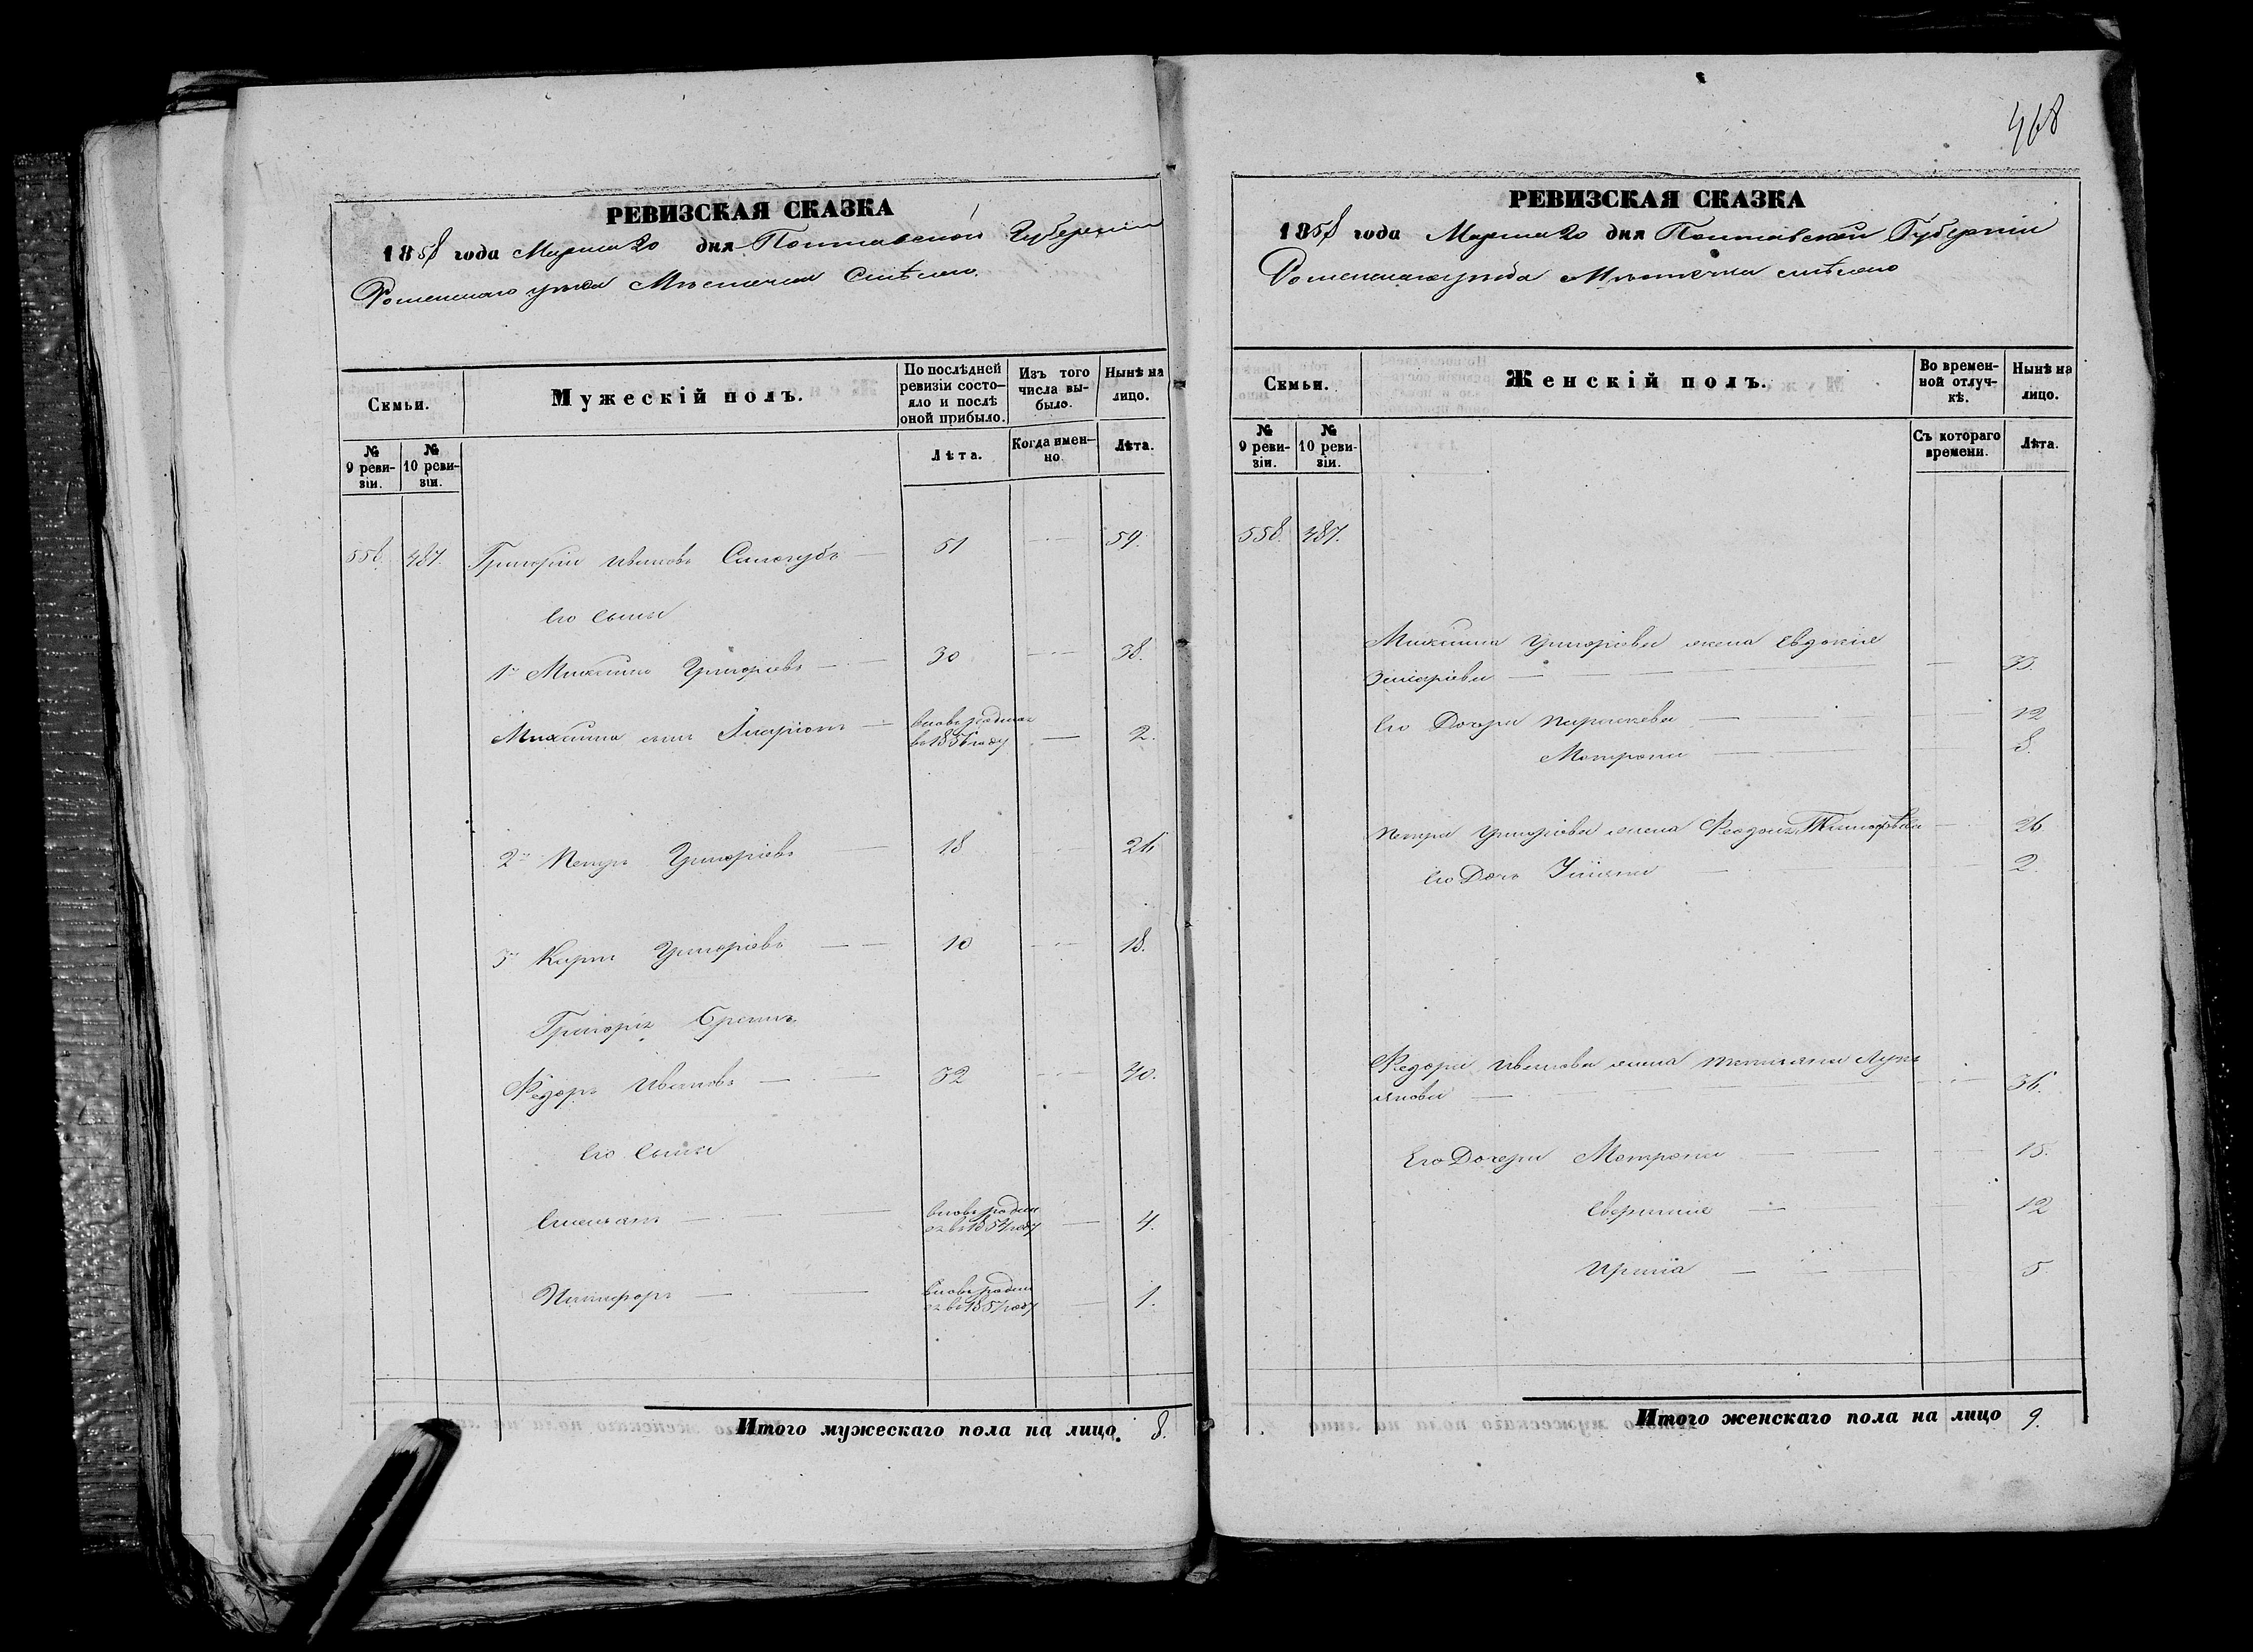 468
РЕВИЗСКАЯ СКАЗКА
1858 года Марта 20 дня Полтавской Губерніи
Роменскаго уезда Мѣстечка Смѣлаго
Семьи.
Мужескій полъ.
По послѣдней ревизіи состояло и послѣ оной прибыло.
Изъ того числа выбыло.
Нынѣ на лицо.
№ 9 ревизіи.
№ 10 ревизіи.
Лѣта.
Когда именно.
Лѣта.
558. 487. Григорій Ивановъ 51 59.
Его сыны
1й Михаилъ Григорьевъ 30 38.
Михаила сынъ Иларіонъ вновь родился въ 1856 году 2.
2й Петръ Григорьевъ 18 26
3й Карпъ Григорьевъ 10 18.
Григорія братъ
Федоръ Ивановъ 32 40.
Его сыны
вновь родился въ 1854 году 4.
Никифоръ вновь родился въ 1857 году 1.
Итого мужескаго пола на лицо 8.
РЕВИЗСКАЯ СКАЗКА
1858 года Марта 20 дня Полтавской Губерніи
Роменскаго уезда Мѣстечка Смѣлаго
Семьи.
Женскій полъ.
Во временной отлучкѣ.
Нынѣ на лицо.
№ 9 ревизіи.
№ 10 ревизіи.
Съ котораго времени.
Лѣта.
558. 487.
Михаила Григорьева жена Евдокія
Его Дочери Параскева 12
Матрона 8.
Петра Григорьева жена Федось Тимофѣева 26
Его Дочь 2.
Федора Иванова жена Татіана Лукь
янова 36.
Его Дочери Матрона 15.
12
Ирина 5
Итого женскаго пола на лицо 9.